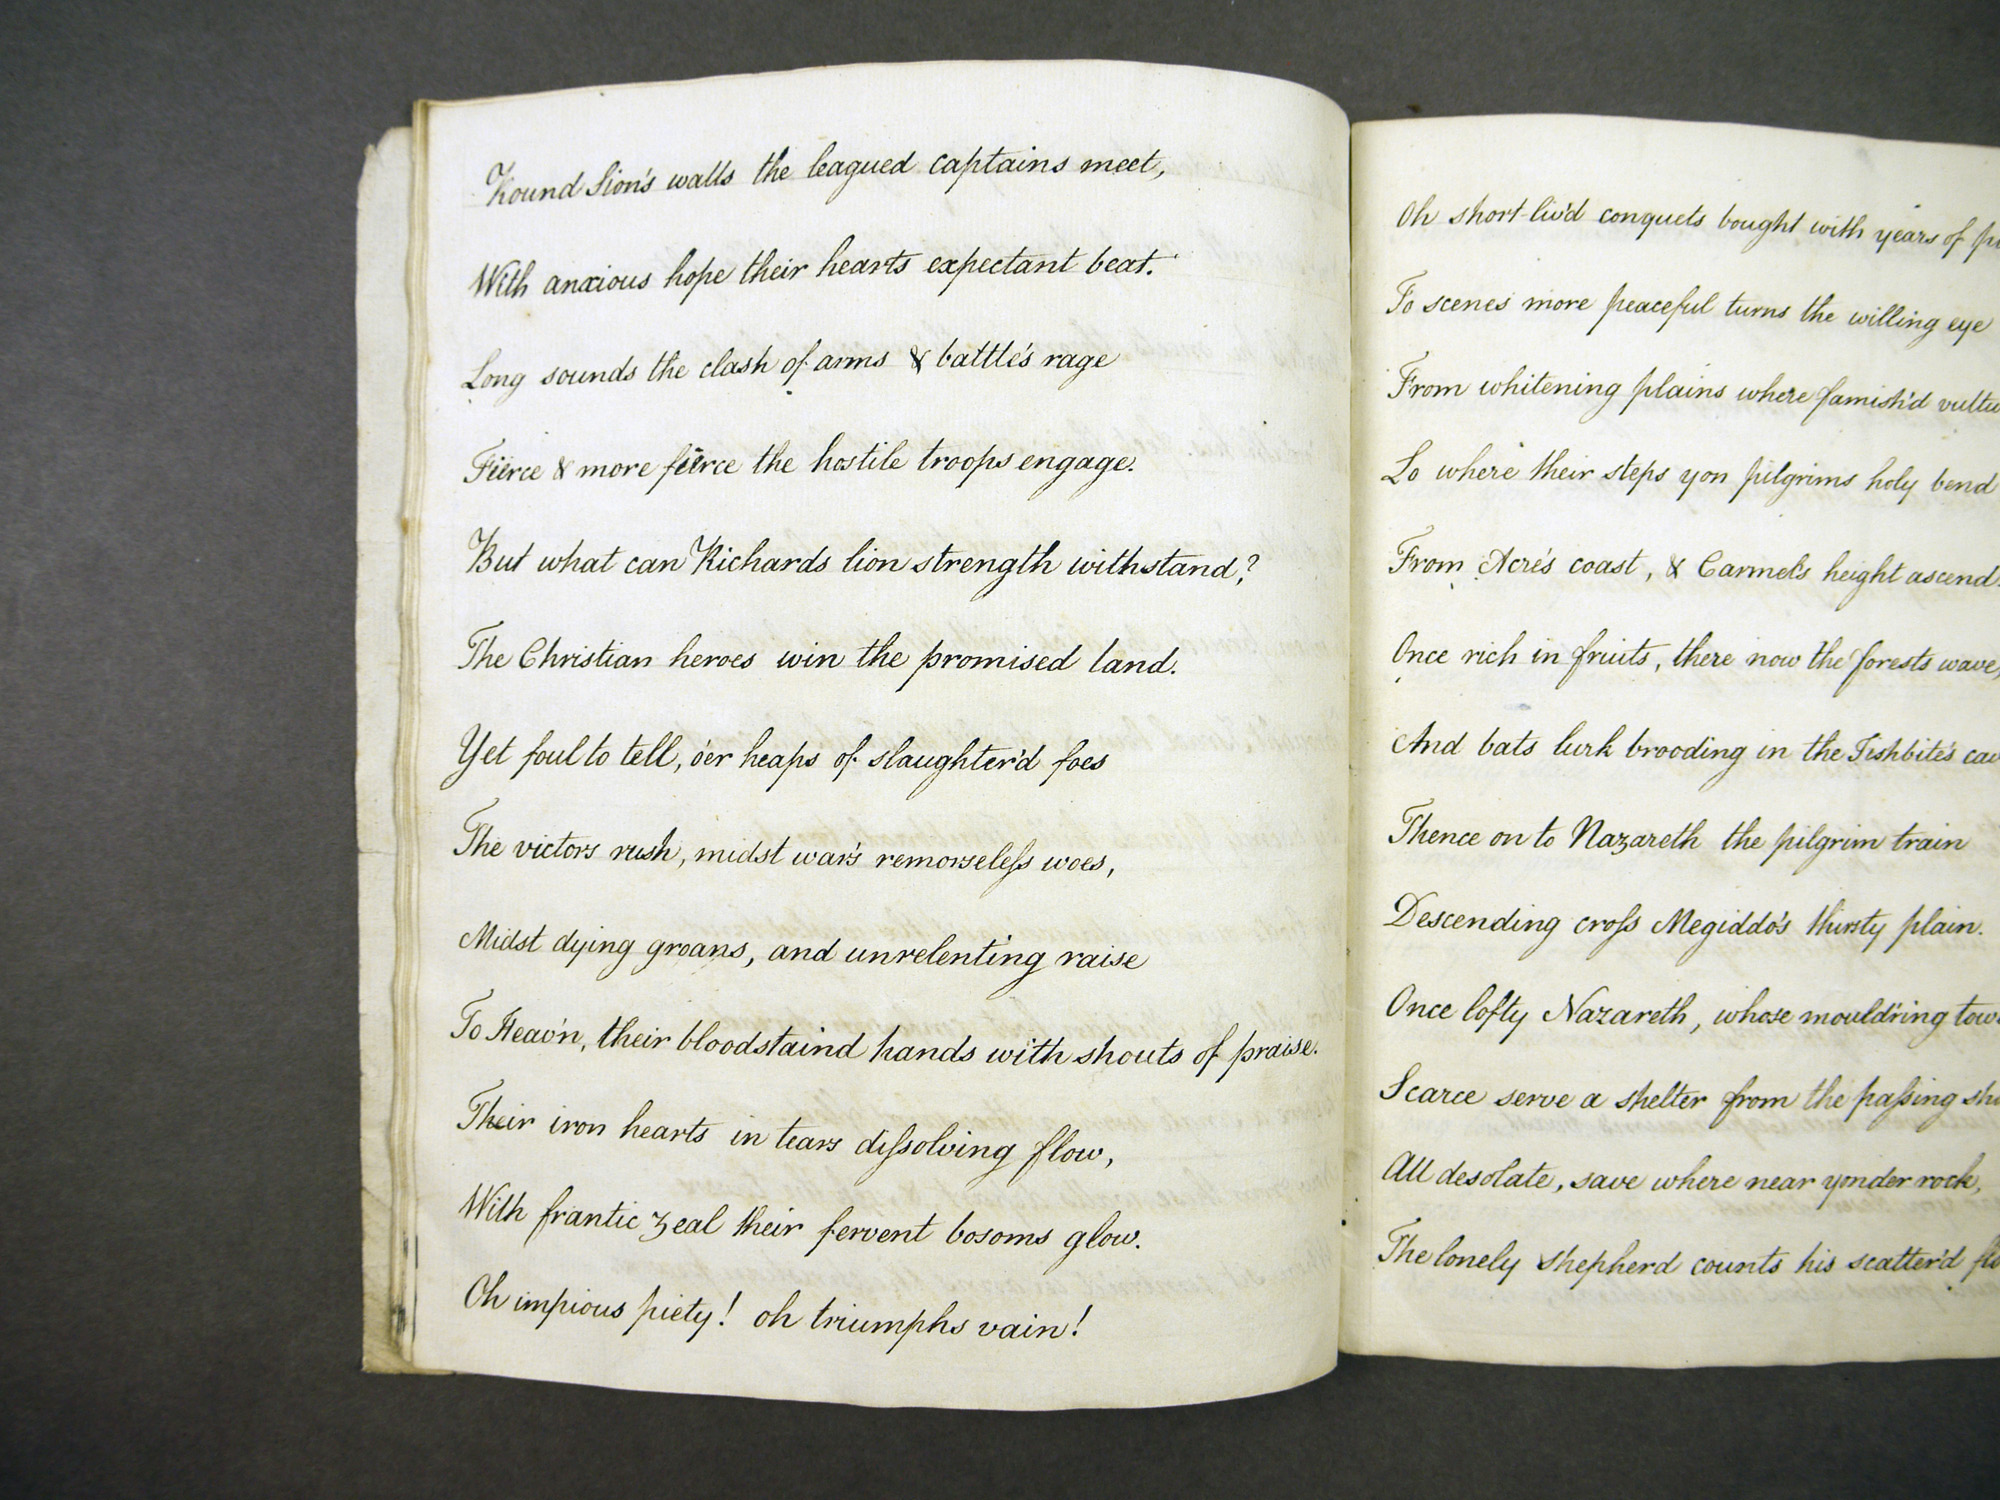 Round Sion's walls the leagued captains meet,
With anxious hope their hearts expectant beat.
Long sounds the clash of arms & battle's rage
Fierce & more fierce the hostile troops engage.
But what can Richards lion strength withstand?
The Christian heroes win the promised land.
Yet foul to tell, o'er heaps of slaughter'd foes
The victors rush, midst war's remorseleſs woes,
Midst dying groans, and unrelenting raise
To Heav'n, their bloodstaind hands with shouts of praise.
Their iron hearts in tears diſsolving flow,
With frantic zeal their fervent bosoms glow.
Oh impious piety! oh triumphs vain!
Oh short-liv'd conquets bought with years of
To scenes more peaceful turns the willing eye
From whitening plains where famish'd
Lo where their steps yon pilgrims holy bend
From Acre's coast, & Carmel's height ascend.
Once rich in fruits, there now the forests wave,
And bats lurk brooding in the Tishbite's
Thence on to Nazareth the pilgrim train
Descending croſs Megiddo's thirsty plain.
Once lofty Nazareth, whose mould'ring
Scarce serve a shelter from the paſsing
All desolate, save where near yonder rock,
The lonely shepherd counts his scatter'd